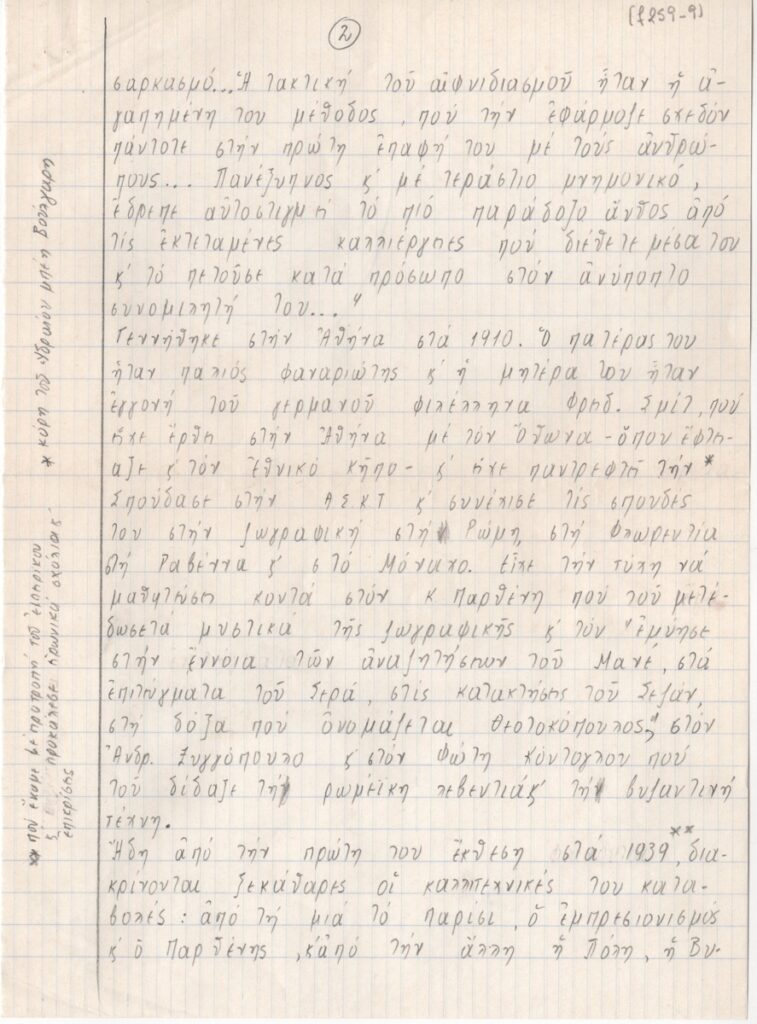 (f259-9)
2
σαρκασμό... Ἡ τακτική τοῦ αἰφνιδιασμοῦ ἦταν ἡ ἀ-
γαπημένη του μέθοδος, πού τήν ἐφάρμοζε σχεδόν
πάντοτε στήν πρώτη ἐπαφή του μέ τούς ἀνθρώ-
πους... Πανέξυπνος κ' μέ τεράστιο μνημονικό,
ἔδρεπε αὐτοστιγμεί τό πιό παράδοξο ἄνθος ἀπό
τίς ἐκτεταμένες καλλιέργειες πού διέθετε μέσα του
κ' τό πετοῦσε κατά πρόσωπο στόν ἀνύποπτο
συνομιλητή του..."
Γεννήθηκε στήν Ἀθήνα στά 1910. Ὁ πατέρας του
ἦταν παλιός φαναριώτης κ' ἡ μητέρα του ἦταν
ἐγγονή τοῦ γερμανοῦ φιλέλληνα Φρεδ. Σμίτ, πού
εἶχε ἔρθει στήν Ἀθήνα μέ τόν Ὄθωνα - ὅπου ἔφτει-
αξε κ' τόν Ἐθνικό κῆπο - κ' εἶχε παντρεφτεῖ τήν *
Σπούδασε στήν ΑΣΚΤ κ' συνέχισε τίς σπουδές
του στήν ζωγραφική στή Ρώμη, στή Φλωρεντία
στή Ραβέννα κ' στό Μόναχο. Εἶχε τήν τύχη νά
μαθητεύσει κοντά στόν Κ Παρθένη πού τοῦ μετέ-
δωσε τά μυστικά τῆς ζωγραφικῆς κ' τόν "ἐμύησε
στήν ἔννοια τῶν ἀναζητήσεων τοῦ Μανέ, στά
ἐπιτεύγματα τοῦ Σερά, στίς κατακτήσεις τοῦ Σεζάν,
στή δόξα πού ὀνομάζεται Θεοτοκόπουλος", στόν
Ἀνδρ. Ξυγγόπουλο κ' στόν Φώτη Κόντογλου πού
τοῦ δίδαξε τή ρωμέϊκη λεβεντιά κ' τή βυζαντινή
τέχνη.
Ἤδη ἀπό τήν πρώτη του ἔκθεση στά 1939**, δια-
κρίνονται ξεκάθαρες οἱ καλλιτεχνικές του κατα-
βολές: ἀπό τή μιά τό Παρίσι, ὁ ἐμπρεσιονισμός
κ' ὁ Παρθένης, κ' ἀπό τήν ἄλλη ἡ Πόλη, ἡ Βυ-
* κόρη τοῦ Ὑδραίου μπέη Βούλγαρη
** πού ἔκαμε μέ προτροπή τοῦ
κ' προκάλεσε εἰρωνικά σχόλια κ'
ἐπικρίσεις